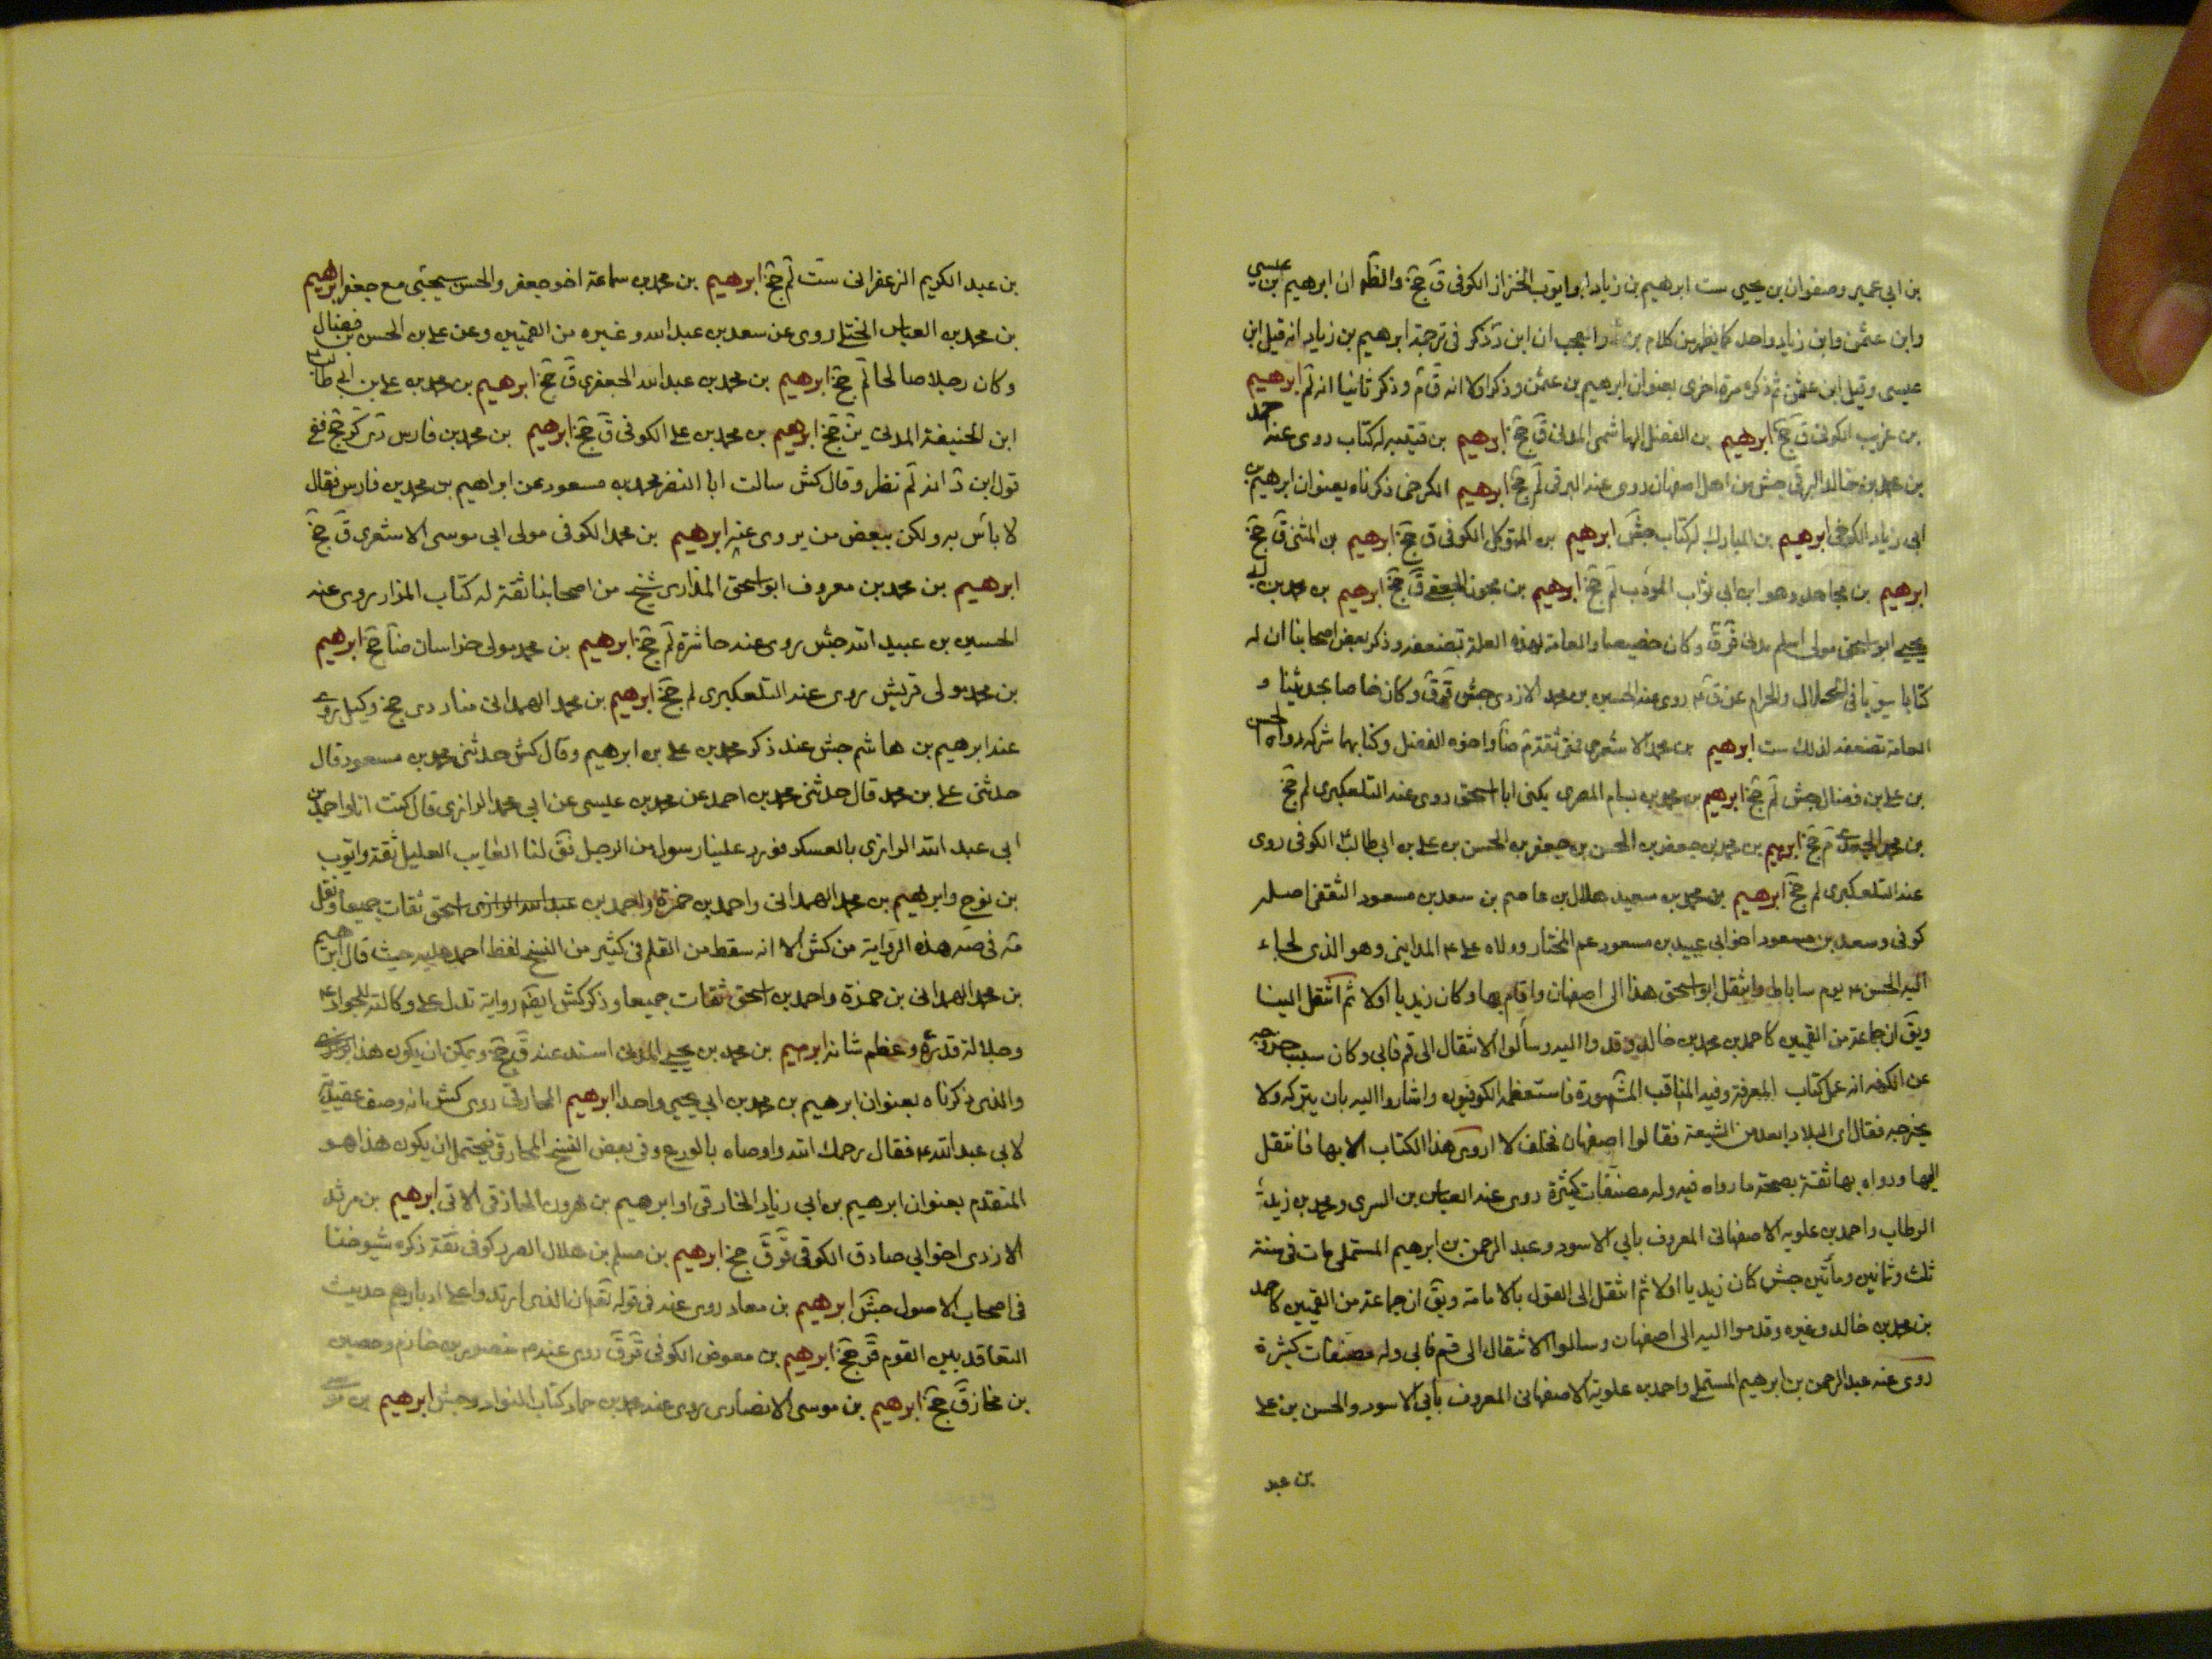 بن ابي عمير وصفوان بن يحيى ست ابرهيم بن زياد ابو ايوب الخزاز الكوفى ق جخ والظ ان ابرهيم بن عيسى
وابن عثمن وابن زياد واحد كما يظهر من كلام والعجب ان ابن د ذكر فى ترجمة ابرهيم بن زياد انه قيل ابن
عيسى وقيل ابن عثمن ثم ذكره مرة اخرى بعنوان ابرهيم بن عثمن وذكر اولا انه ق م وذكر ثانيا انه لم ابرهيم
بن غريب الكوفى ق جخ ابرهيم بن الفضل الهاشمى المدنى ق جخ ابرهيم بن قتيبه له كتاب روى عنه احمد
بن محمد بن خالد البرقى جش من اهل اصفهان روى عنه البرقى لم جخ ابرهيم الكرخى ذكرناه بعنوان ابرهيم بن
ابي زياد الكرخى ابرهيم بن المبارك له كتاب جش ابرهيم بن المتوكل الكوفى ق جخ ابرهيم بن المثنى ق جخ
ابرهيم بن مجاهد وهو ابن ابي ثواب المؤدب لم جخ ابرهيم بن محرز الجعفى ق جخ ابرهيم بن محمد بن ابي
يحيى ابو اسحق مولى اسلم مدنى ق ق وكان خصيصا والعامة لهذه العلة تضعفه وذكر بعض اصحابنا ان له
كتابا مبوبا فى الحلال والحرام عن ق ع روى عنه الحسين بن محمد الازدى جش ق ق وكان خاصا بحديثنا و
العامة تضعفه لذلك ست ابرهيم بن محمد الاشعرى قمى ثقة م ضا واخوه الفضل وكتابهما شركه رواه الحسن
بن على بن فضال جش لم جخ ابرهيم بن محمد بن بسام المصرى يكنى ابا اسحق روى عنه التلعكبرى لم جخ
بن محمد الجعفى م جخ ابرهيم بن محمد بن جعفر بن الحسن بن جعفر بن الحسن بن على بن ابي طالب ع الكوفى روى
عنه التلعكبرى لم جخ ابرهيم بن محمد بن سعيد بن هلال بن عاصم بن سعد بن مسعود الثقفى اصله
كوفى وسعد بن مسعود اخو ابي عبيد بن مسعود عم المختار وولاه على ع المداين وهو الذى لجاء
اليه الحسن ع يوم ساباط وانتقل ابو اسحق هذا الى اصفهان واقام بها وكان زيديا اولا ثم انتقل الينا
ويق ان جماعة من القميين كاحمد بن محمد بن خالد وفدوا اليه وسالوا الانتقال الى قم فابى وكان سبب خروجه
عن الكوفه انه عمل كتاب المعرفة وفيه المناقب المشهورة فاستعظمه الكوفيون واشاروا اليه بان يتركه ولا
يخرجه فقال اى البلاد ابعد من الشيعة فقالوا اصفهان فحلف لا اروى هذا الكتاب الا بها فانتقل
اليها ورواه بها ثقة بصحة ما رواه فيه وله مصنفات كثيرة روى عنه العباس بن السرى ومحمد بن زيد
الرطاب واحمد بن علويه الاصفهانى المعروف بابي الاسود وعبد الرحمن بن ابرهيم المستملى مات فى سنة
ثلث وثمانين ومأتين جش كان زيديا اولا ثم انتقل الى القول بالامامة ويق ان جماعة من القميين كاحمد
بن محمد بن خالد وغيره وقدموا اليه الى اصفهان وسالوا الانتقال الى قم فابى وله مصنفات كثيرة
روى عنه عبد الرحمن بن ابرهيم المستملى واحمد بن علوية الاصفهانى المعروف بابي الاسود والحسن بن على
بن عبد
بن عبد الكريم الزعفرانى ست لم جخ ابرهيم بن محمد بن سماعة اخو جعفر والحسن سيجئى مع جعفر ابرهيم
بن محمد بن العباس الختلى روى عن سعد بن عبد الله وغيره من القميين وعن على بن الحسن بن فضال
وكان رجلا صالحا لم جخ ابرهيم بن محمد بن عبد الله الجعفرى ق جخ ابرهيم بن محمد بن على بن ابي طالب ع
ابن الحنيفة المدنى ين جخ ابرهيم بن محمد بن على الكوفى ق جخ ابرهيم بن محمد بن فارس دى كر جخ ففى
قول ابن د انه لم نظر وقال كش سالت ابا النضر محمد بن مسعود عن ابراهيم بن محمد بن فارس فقال
لا بأس به ولكن ببعض من يروى عنه ابرهيم بن محمد الكوفى مولى ابي موسى الاشعرى ق جخ
ابرهيم بن محمد بن معروف ابو اسحق المذارى شيخ من اصحابنا ثقة له كتاب المزار روى عنه
الحسين بن عبيد الله جش روى عنه حاشرة لم جخ ابرهيم بن محمد مولى خراسان ضا جخ ابرهيم
بن محمد مولى قريش روى عنه التلعكبرى لم جخ ابرهيم بن محمد الهمدانى ضا د دى جخ وكيل روى
عنه ابرهيم بن هاشم جش عند ذكر محمد بن على بن ابرهيم وقال كش حدثنى محمد بن مسعود قال
حدثنى على بن محمد قال حدثنى محمد بن احمد عن محمد بن عيسى عن ابي محمد الرازى قال كنت انا واحمد بن
ابي عبد الله الرازى بالعسكر فورد علينا رسول من الرجل فق لنا الغايب العليل ثقة وايوب
بن نوح وابرهيم بن محمد الهمدانى واحمد بن حمزة واحمد بن اسحق ثقات جميعا ونقل
مة فى صه هذه الرواية من كش الا انه سقط من القلم فى كثير من النسخ لفظ احمد حيث قال ابرهيم
بن محمد الهمدانى بن حمزة واحمد بن اسحق ثقات جميعا وذكر كش ايضا رواية تدل على وكالته للجواد ع
وجلالة قدره وعظم شانه ابرهيم بن محمد بن يحيى المدنى اسند عنه ق جخ ويمكن ان يكون هذا
والذى ذكرناه بعنوان ابرهيم بن محمد بن ابي يحيى واحدا ابرهيم المخارقى روى كش انه وصف عقيدته
لابي عبد الله ع فقال رحمك الله واوصاه بالورع وفى بعض النسخ المحارقى فيحتمل ان يكون هذا هو
المتقدم بعنوان ابرهيم بن ابي زياد الخارقى او ابرهيم بن هرون الخارقى الاتى ابرهيم بن مرثد
الازدى اخو ابي صادق الكوفى ق ق جخ ابرهيم بن مسلم بن هلال الضرير كوفى ثقة ذكره شيوخنا
فى اصحاب الاصول جش ابرهيم بن معاد روى عنه فى قوله تع ان الذين ارتدوا على ادبارهم حديث
التعاقد بين القوم ق جخ ابرهيم بن معرض الكوفى ق ق روى عنه منصور بن حازم وحصين
بن مخارق جخ ابرهيم بن موسى الانصارى روى عنه محمد بن حماد كتاب النوادر جش ابرهيم بن